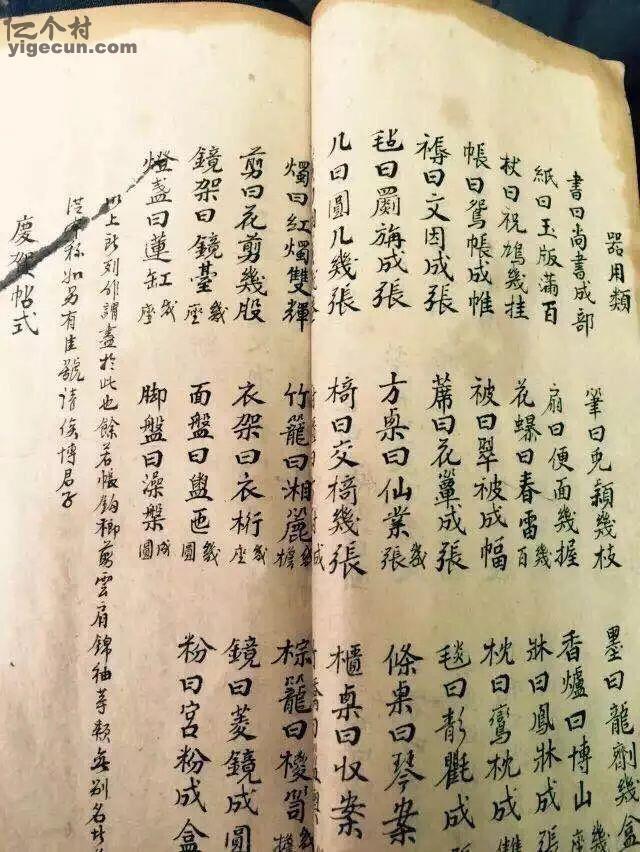 亿个村
yigecun.com
器用類
書曰尚書成部 筆曰兔穎幾枝 墨曰龍劑幾盒
紙曰玉版滿百 扇曰便面幾握 香爐曰博山座
杖曰祝鳩幾挂 花爆曰春雷幾百 牀曰鳳牀成張
帳曰鴛帳成帷 被曰翠被成幅 枕曰鸞枕成雙
褥曰文因成張 蓆曰花簟成張 毯曰彩氍成
毡曰罽旃成張 方桌曰仙業幾張 條桌曰琴案
几曰圓几幾張 椅曰交椅幾張 櫃桌曰收案
燭曰紅燭雙輝 竹籠曰湘簏 棕籠曰椶笥幾
剪曰花剪幾股 衣架曰衣桁幾座 鏡曰菱鏡成圓
鏡架曰鏡臺幾座 面盤曰盥匜幾圓 粉曰宮粉成盒
燈盞曰蓮缸幾座 脚盤曰澡槃成圓
以上所列作謂盡於此也餘若帳鈎剪雲肩錦袖等類無別名
稱如另有佳號請俟博君子
慶賀帖式